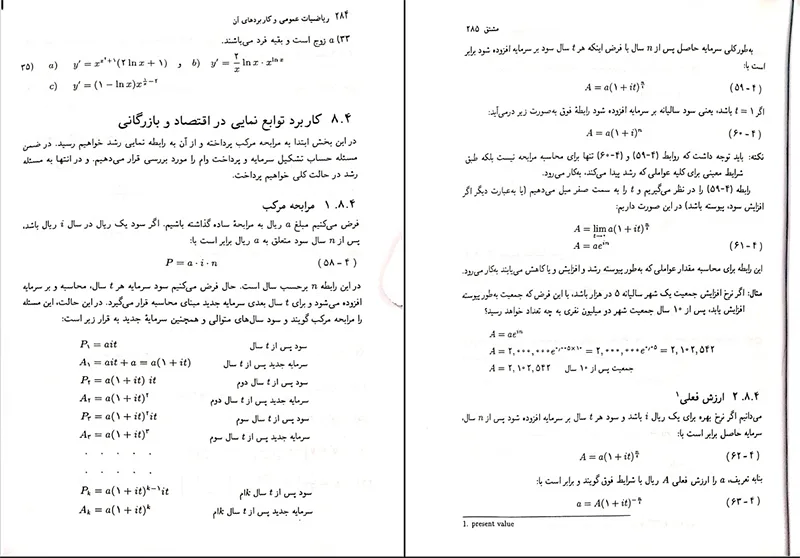 ۲۸۴ ریاضیات عمومی و کاربردهای آن
۳۳) a زوج است و بقیه فرد می‌باشند.
۳۵) a) y′ = x^{x^۲+۱}(۲ ln x + ۱) , b) y′ = ۲/x ln x · x^{ln x}
c) y′ = (۱ − ln x)x^{۱/x − ۲}
۸.۴ کاربرد توابع نمایی در اقتصاد و بازرگانی
در این بخش ابتدا به مرابحه مرکب پرداخته و از آن به رابطه نمایی رشد خواهیم رسید. در ضمن
مسئله حساب تشکیل سرمایه و پرداخت وام را مورد بررسی قرار می‌دهیم. و در انتها به مسئله
رشد در حالت کلی خواهیم پرداخت.
۱.۸.۴ مرابحه مرکب
فرض می‌کنیم مبلغ a ریال به مرابحهٔ ساده گذاشته باشیم. اگر سود یک ریال در سال i ریال باشد،
پس از n سال سود متعلق به a ریال برابر است با:
P = a · i · n (۵۸-۴)
در این رابطه n برحسب سال است. حال فرض می‌کنیم سود سرمایه هر t سال، محاسبه و بر سرمایه
افزوده می‌شود و برای t سال بعدی سرمایه جدید مبنای محاسبه قرار می‌گیرد. در این حالت، این مسئله
را مرابحه مرکب گویند و سود سال‌های متوالی و همچنین سرمایهٔ جدید به قرار زیر است:
P۱ = ait سود پس از t سال
A۱ = ait + a = a(۱ + it) سرمایه جدید پس از t سال
P۲ = a(۱ + it) it سود پس از t سال دوم
A۲ = a(۱ + it)^۲ سرمایه جدید پس از t سال دوم
P۳ = a(۱ + it)^۲ it سود پس از t سال سوم
A۳ = a(۱ + it)^۳ سرمایه جدید پس از t سال سوم
. . . . .
P_k = a(۱ + it)^{k−۱} it سود پس از t سال kام
A_k = a(۱ + it)^k سرمایه جدید پس از t سال kام
مشتق ۲۸۵
به‌طورکلی سرمایه حاصل پس از n سال با فرض اینکه هر t سال سود بر سرمایه افزوده شود برابر
است با:
A = a(۱ + it)^{n/t} (۵۹-۴)
اگر t = ۱ باشد، یعنی سود سالیانه بر سرمایه افزوده شود رابطهٔ فوق به‌صورت زیر درمی‌آید:
A = a(۱ + i)^n (۶۰-۴)
نکته: باید توجه داشت که روابط (۵۹-۴) و (۶۰-۴) تنها برای محاسبه مرابحه نیست بلکه طبق
شرایط معینی برای کلیه عواملی که رشد پیدا می‌کند، به‌کار می‌رود.
رابطه (۵۹-۴) را در نظر می‌گیریم و t را به سمت صفر میل می‌دهیم (یا به‌عبارت دیگر اگر
افزایش سود، پیوسته باشد) در این صورت داریم:
A = lim_{t→۰} a(۱ + it)^{n/t}
A = ae^{in} (۶۱-۴)
این رابطه برای محاسبه مقدار عواملی که به‌طور پیوسته رشد و افزایش و یا کاهش می‌یابند به‌کار می‌رود.
مثال: اگر نرخ افزایش جمعیت یک شهر سالیانه ۵ در هزار باشد، با این فرض که جمعیت به‌طور پیوسته
افزایش یابد، پس از ۱۰ سال جمعیت شهر دو میلیون نفری به چه تعداد خواهد رسید؟
A = ae^{in}
A = ۲,۰۰۰,۰۰۰e^{۰٫۰۰۵×۱۰} = ۲,۰۰۰,۰۰۰e^{۰٫۰۵} = ۲,۱۰۲,۵۴۲
A = ۲,۱۰۲,۵۴۲ جمعیت پس از ۱۰ سال
۲.۸.۴ ارزش فعلی^۱
می‌دانیم اگر نرخ بهره برای یک ریال i باشد و سود هر t سال بر سرمایه افزوده شود پس از n سال،
سرمایه حاصل برابر است با:
A = a(۱ + it)^{n/t} (۶۲-۴)
بنابه تعریف، a را ارزش فعلی A ریال با شرایط فوق گویند و برابر است با:
a = A(۱ + it)^{−n/t} (۶۳-۴)
1. present value